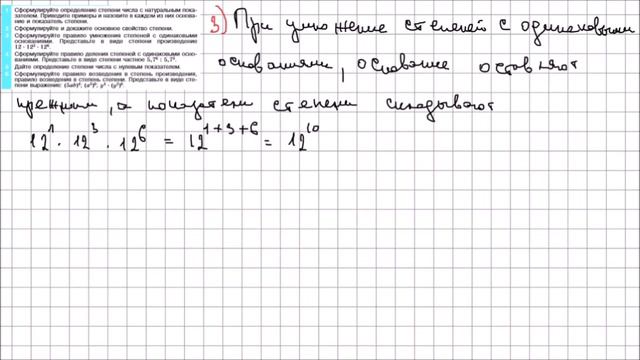 1 Сформулируйте определение степени числа с натуральным пока-
зателем. Приведите примеры и назовите в каждом из них основа-
ние и показатель степени.
2 Сформулируйте и докажите основное свойство степени.
3 Сформулируйте правило умножения степеней с одинаковыми
основаниями. Представьте в виде степени произведение
12 · 12³ · 12⁶.
4 Сформулируйте правило деления степеней с одинаковыми осно-
ваниями. Представьте в виде степени частное
5 Дайте определение степени числа с нулевым показателем.
6 Сформулируйте правило возведения в степень произведения,
правило возведения в степень степени. Представьте в виде сте-
пени выражение:
3) При умножение степеней с одинаковыми
основаниями, основание оставляют
прежним, а показатели степени складывают
12¹ · 12³ · 12⁶ = 12¹⁺³⁺⁶ = 12¹⁰